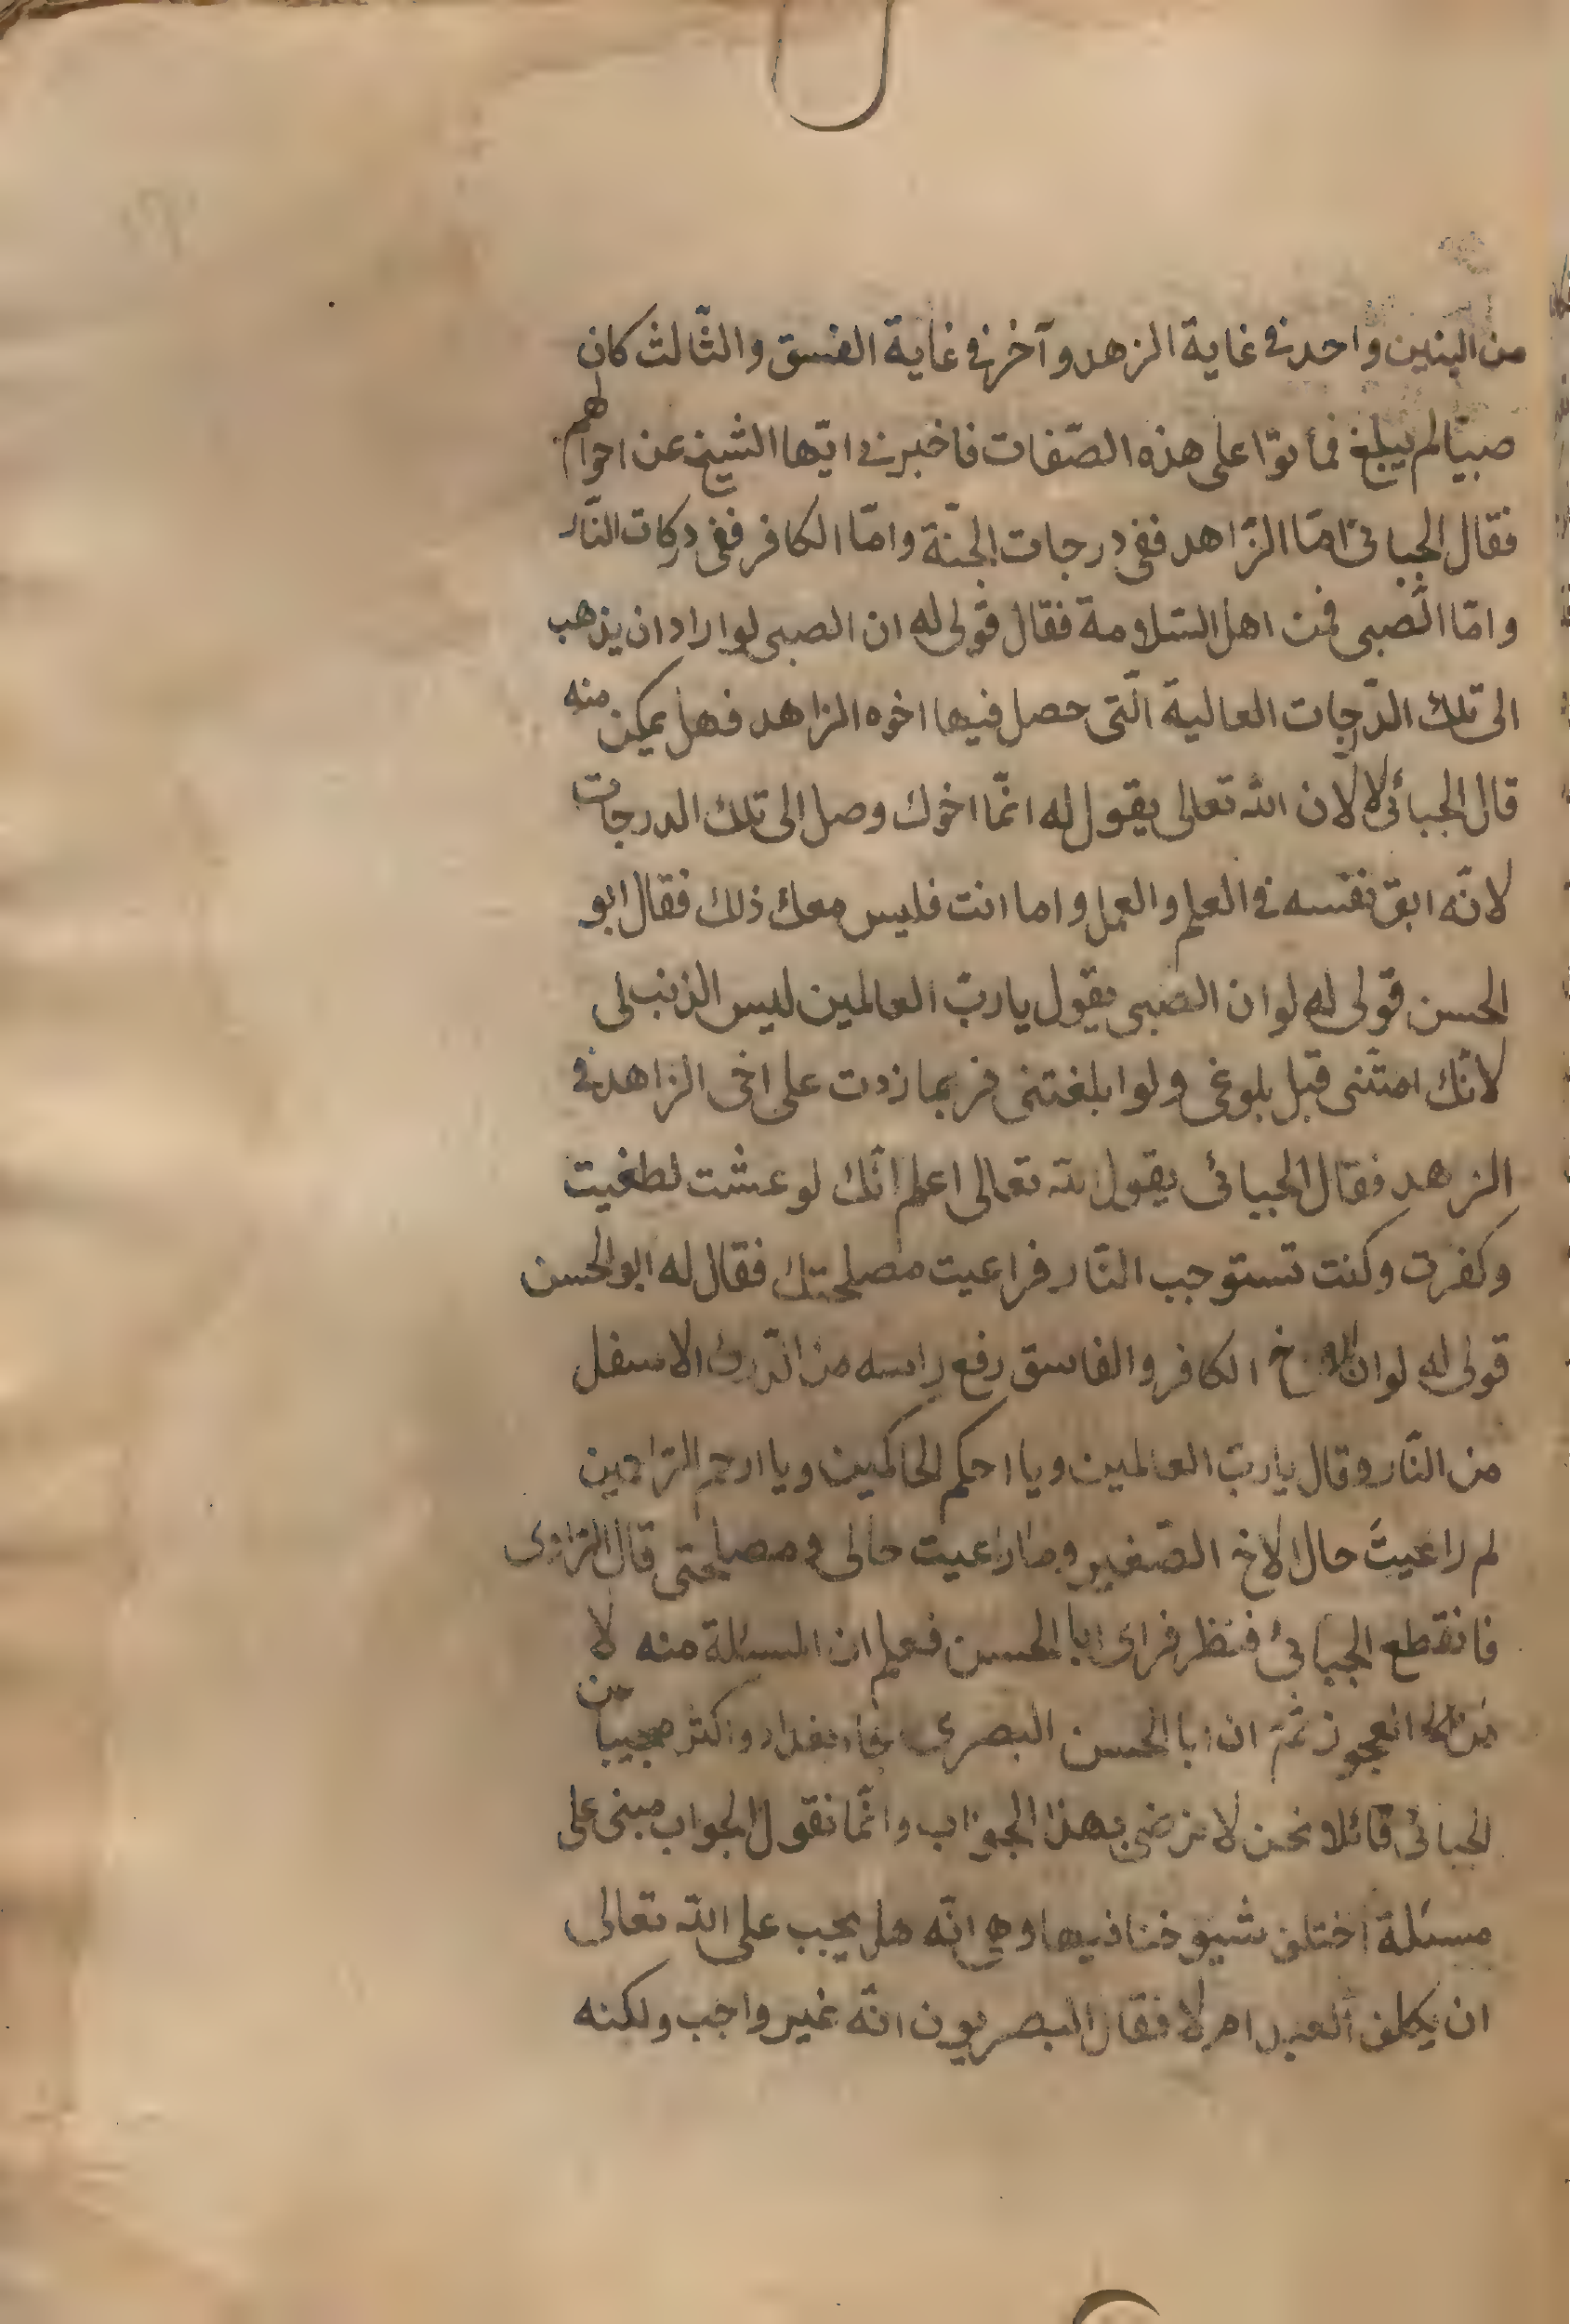 من البنين واحد في غاية الزهد وآخر في غاية الفسق والثّالث كان
صبيّا لم يبلغ فماتوّا على هذه الصّفات فاخبرني ايّها الشيخ عن احوالهم
فقال الجبائى امّا الزّاهد ففى درجات الجنّة وامّا الكافر ففى دركات النّار
وامّا الصّبى فمن اهل السّلامة فقال قولى له ان الصبى لو اراد ان يذهب
الى تلك الدّرجات العالية الّتى حصل فيها اخوه الزاهد فهل يمكن منه
قال الجبائى لا لان الله تعالى يقول له انمّا اخوك وصل الى تلك الدرجات
لانّه نفسه في العلم والعمل واما انت فليس معك ذلك فقال ابو
الحسن قولى له لو ان الصبى يقول يا ربّ العالمين ليس الذنب لى
لانّك امتّنى قبل بلوغى ولو ابلغتنى فربما زدت على اخى الزاهد في
الزهد فقال الجبيائى يقول الله تعالى اعلم انّك لو عشت لطغيت
وكفرت وكنت تستوجب النّار فراعيت مصلحتك فقال له ابو الحسن
قولى له لو ان الاخ الكافر والفاسق رفع راسه من الدّرك الاسفل
من النّار وقال يا ربّ العالمين ويا احكم الحاكمين ويا ارحم الرّاحمين
لم راعيتَ حال الاخ الصّغير وما راعيت حالى ومصلحتى قال الرّاوى
فانقطع الجبيائئ فنظر فراى ابا الحسن فعلم ان المسئلة منه لا
من العجوز ثمّ ان ابا الحسن البصرى بغداد واكثر مجيبًا من
الجبائى قائلا نحن لا نرضى بهذا الجواب وانّما نقول الجواب مبنى على
مسئلة اختلف شيوخنا فيها وهي انّه هل يجب على الله تعالى
ان يكلف العبد ام لا فقال البصريون انّه غير واجب ولكنه